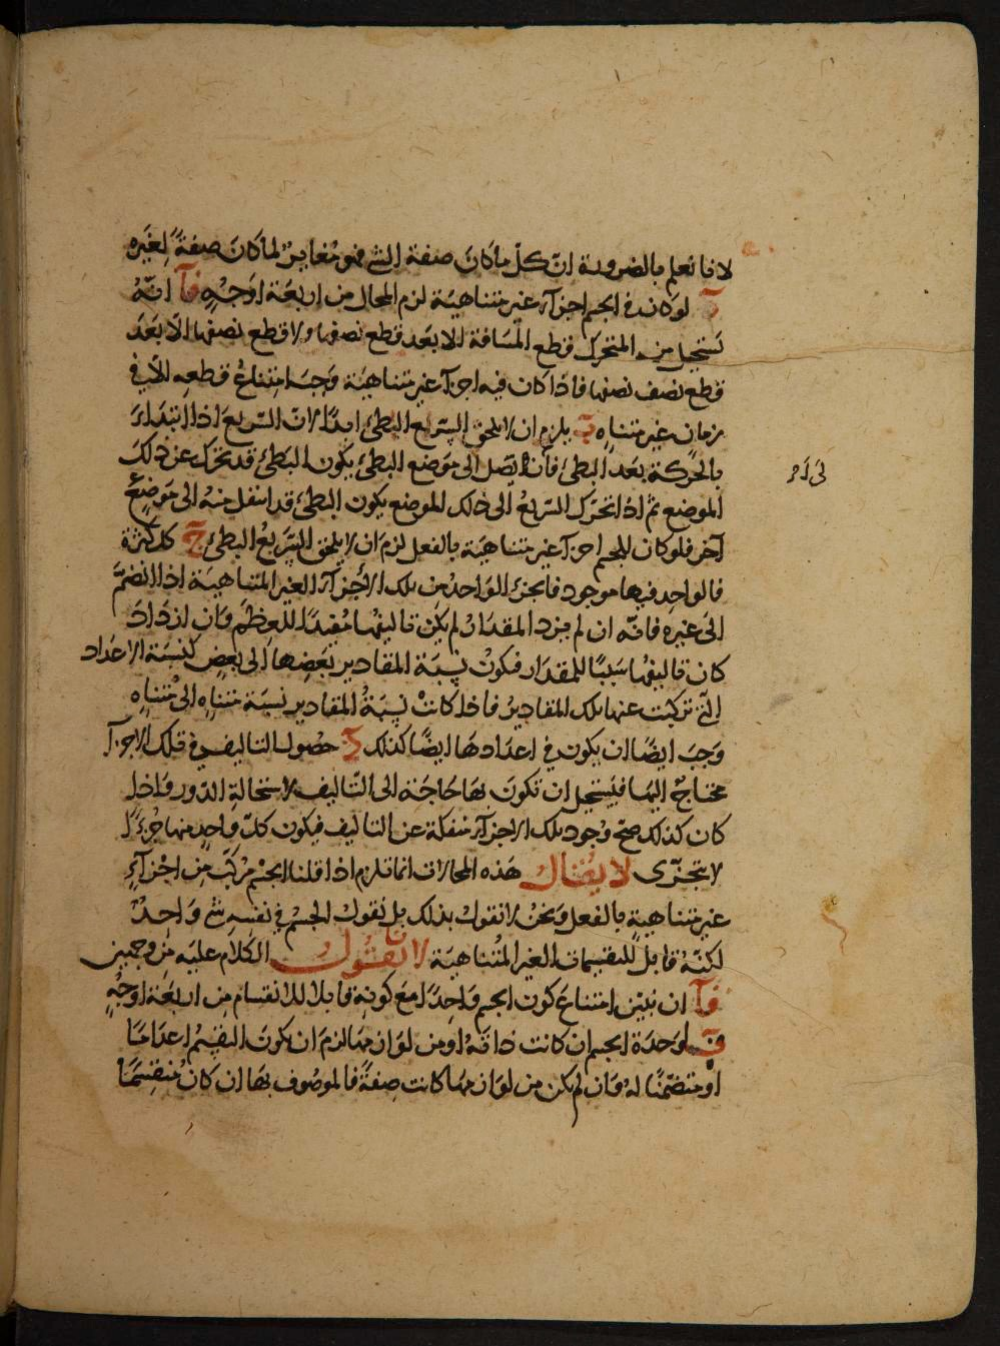 لانا نعلم بالضرورة ان كلّ ما كانَ صفة الشئ فهو مُغايرٌ لما كانَ صفةً لغَيره
لو كان في الجسم اجزآء غير متناهيَة لزم المحال من اربعَة اوجُهٍ فآ انّهُ
يَستحيل من المتحرك قطع المَسَافة الا بعَد قطع نصفها ولا قطع نصفها الّا بَعدَ
قطع نصف نصفها فاذا كان فيه اجزآء غير متناهيَة وَجبَ امتناعُ قطعه الّا في
زمان غير متناهٍ ب يلزم ان لا يلحق السّريع البطئ ابدًا لانّ السّريعَ اذا ابتداءَ
بالحركة بَعد البطئ فان وصَل الى مَوضع البطئ يكون البَطئ قد تحَرّك عن ذلكَ
الموضع ثمّ اذا تحَرّك السّريعُ الى ذلك الموضع يكون البطئ قد انتقل منهُ الى مَوضعٍ
آخر فلو كان للجسم اجزآء غير متناهيَة بالفعل لزمَ ان لا يلحق السَّريعُ البطئ ج كل كثرة
فالواحد فيها موجود فالجزء الوَاحد من تلك الاجزآء الغير المتناهيَة اذا انضمّ
الى غيره فانّه ان لم يزد المقدار لم يكن تاليفها مُفيدًا للعِظَم وَان ازدَادَ
كان تاليفها سَببًا للمقدار فيكونُ نسبَة المقادير بَعضها الى بعض كنسبَة الاعدَاد
الّتي تركبت عنها تلك المقاديرُ فاذا كانتْ نسبَةُ المقادير نسبَة متناهٍ الى مُتناهٍ
وَجبَ ايضًا ان يكون في اعدَادهَا ايضًا كذلك د حصُول التاليف في تلك الاجزآء
محتاجٌ اليها فيَستحيل ان تكونَ بهَا حَاجَة الى التّاليف لاستحالةِ الدّور وَاذا
كان كذلك صحّ وُجود تلك الاجزآء منفكة عن التاليف فيكون كلّ واحدٍ منها جُزءًا
لا يتجزّى لا يقال هَذه المحالات انما تلزم اذا قلنا الجسم مُركّبٌ من اجزآءٍ
غير متناهيةٍ بالفعل وَنحنُ لا نقول بذلك بل نقول الجسْم في نفسهِ شئ وَاحدٌ
لكنّهُ قابلٌ للتقسيمات الغير المتناهيَة لانا نقول الكلام عليَه من وجهين
فآ ان نبيّن امتناعَ كون الجسم وَاحدًا مع كونه قابلا للانقسام من اربعَة اوجُهٍ
لوَحدَة الجسم ان كانت ذاتَه او من لوازمهَا لزمَ ان يكونَ التقسيمُ اعدَامًا
او متضمّنًا لهُ وَان لم يكن من لوازمهَا كانت صفةً فالموصُوف بهَا ان كان مُنقسمًا